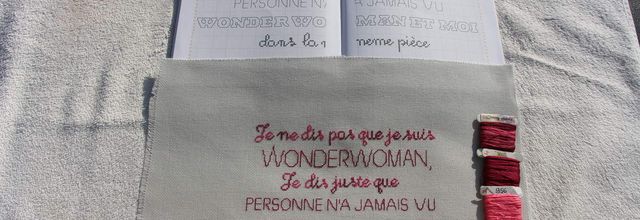 PERSONNE N'A JAMAIS VU
WONDER WOMEN ET MOI
dans la meme pièce
Je ne dis pas que je suis
WONDERWOMAN,
Je dis juste que
PERSONNE N'A JAMAIS VU